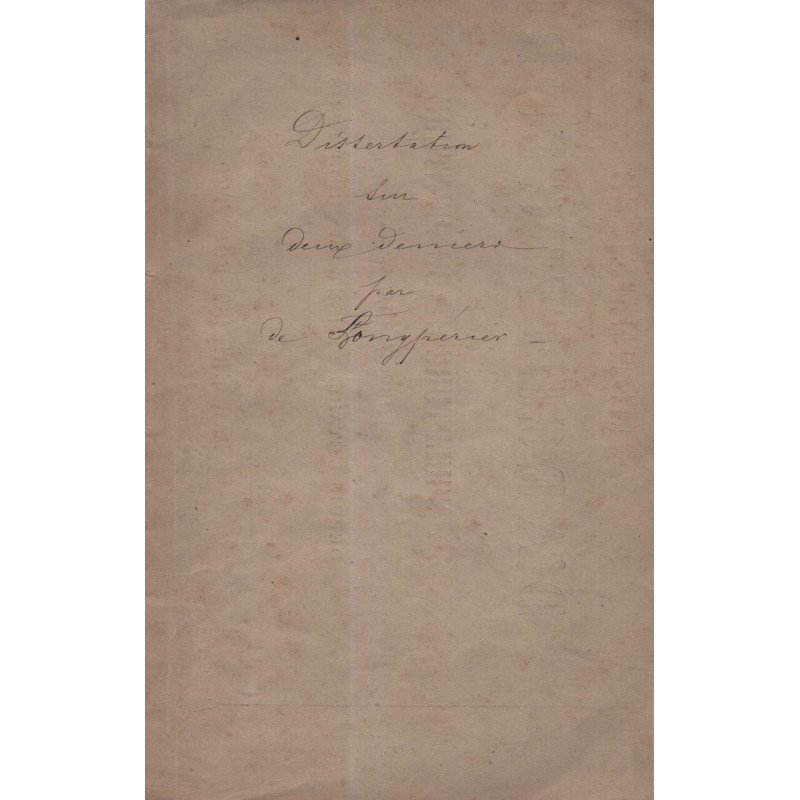 Dissertation
sur
deux deniers
par
de Longpérier -